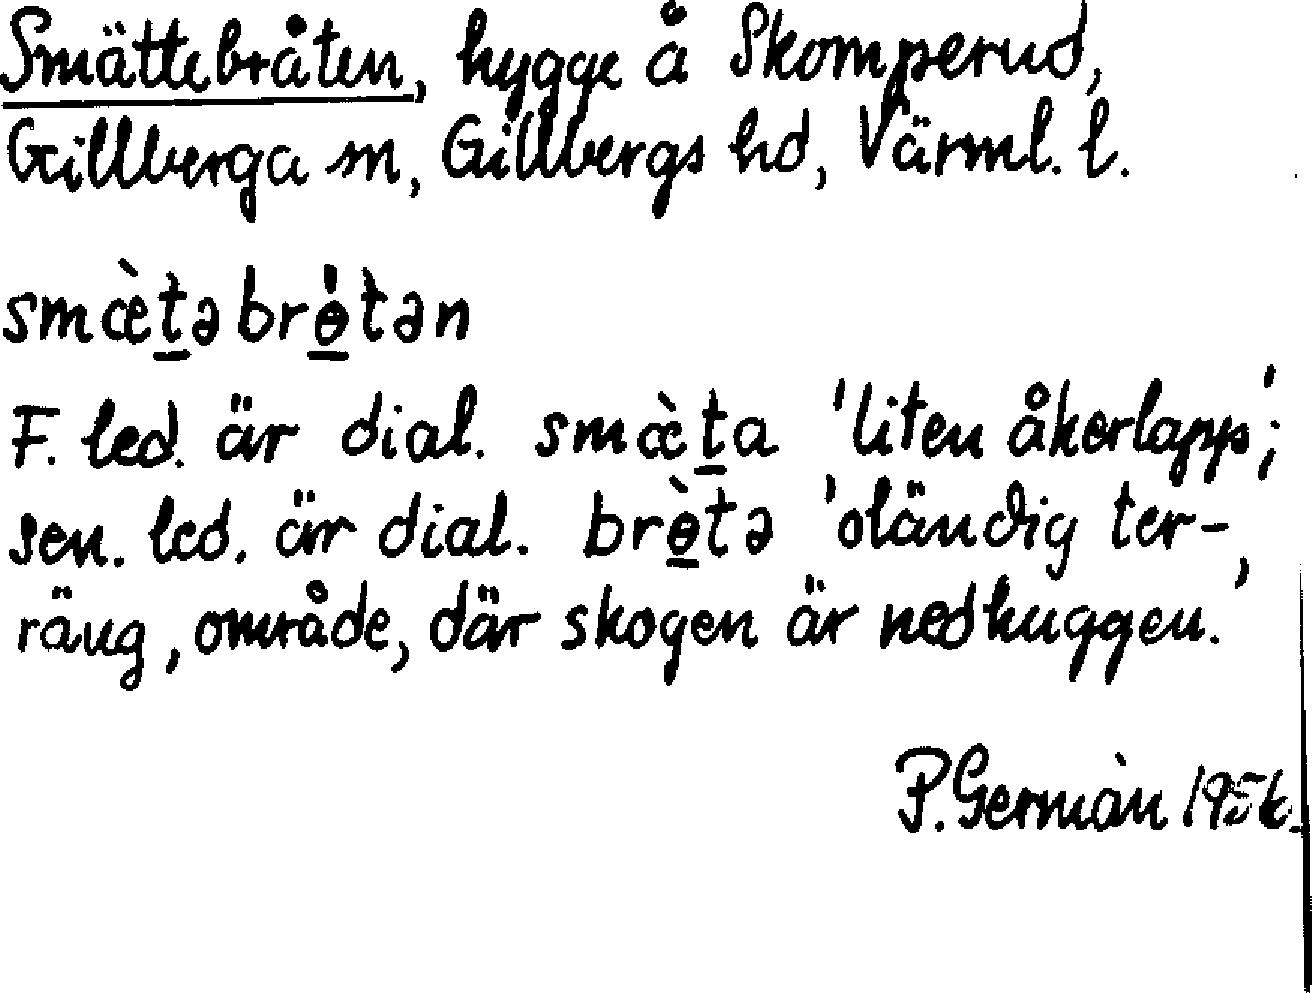 Smättebråten, hygge å Skomperud,
Gillberga sn, Gillbergs hd, Värml. l.
smæ̀t̲əbrө̲̍tən
F. led. är dial. smæ̀t̲a 'liten åkerlapp';
sen. led. är dial. brө̲̀tə 'oländig ter-
räng, område, där skogen är nedhuggen.'
P. Germàn